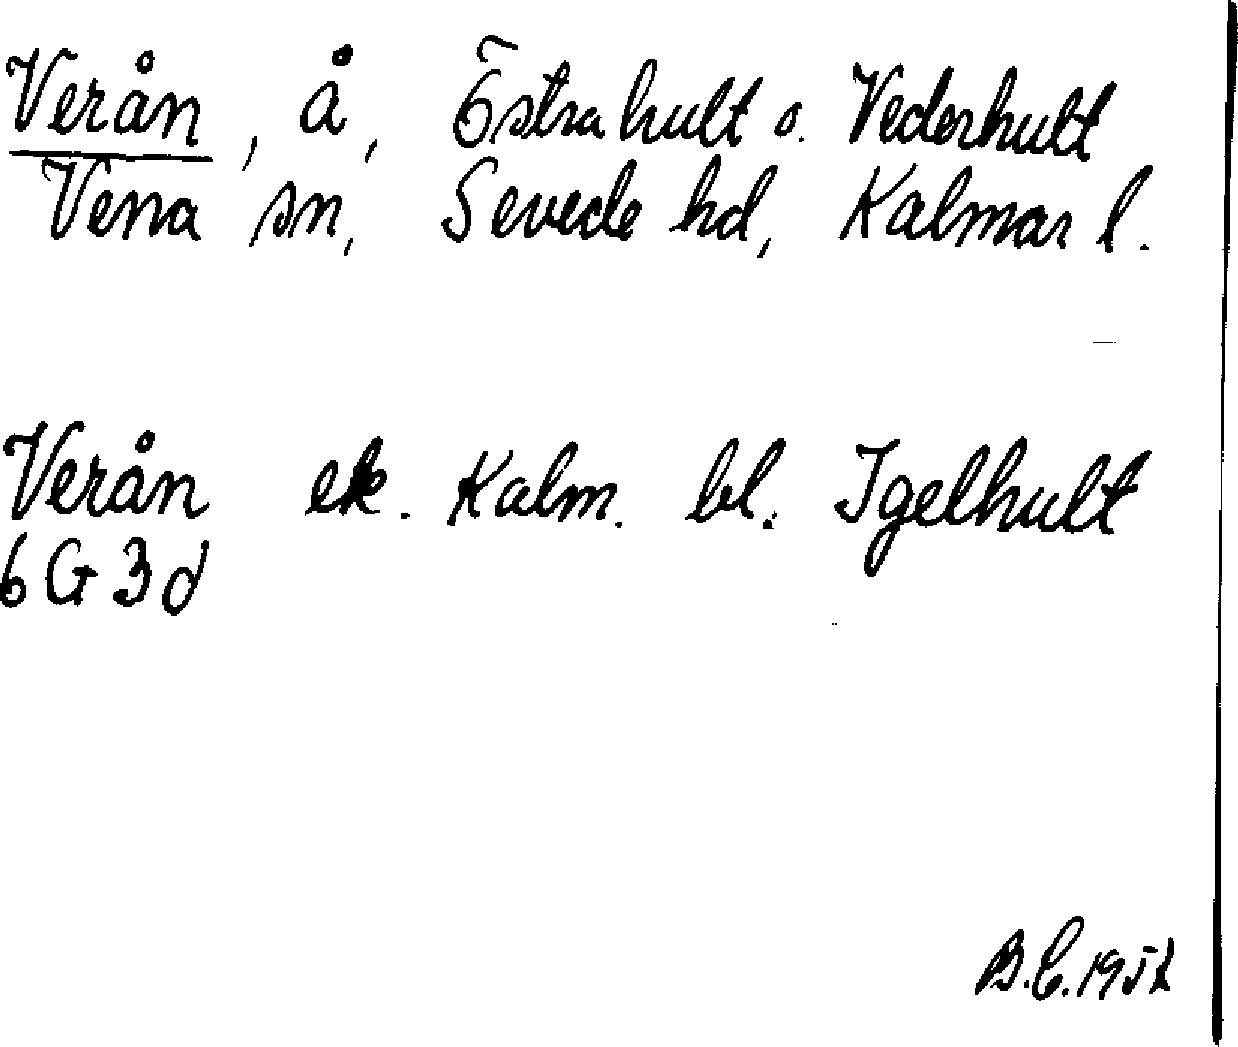 Verån, å, Östrahult o. Vederhult
Vena sn, Sevede hd, Kalmar l.
Verån ek. Kalm. bl. Igelhult
6G3d
B.E. 1952